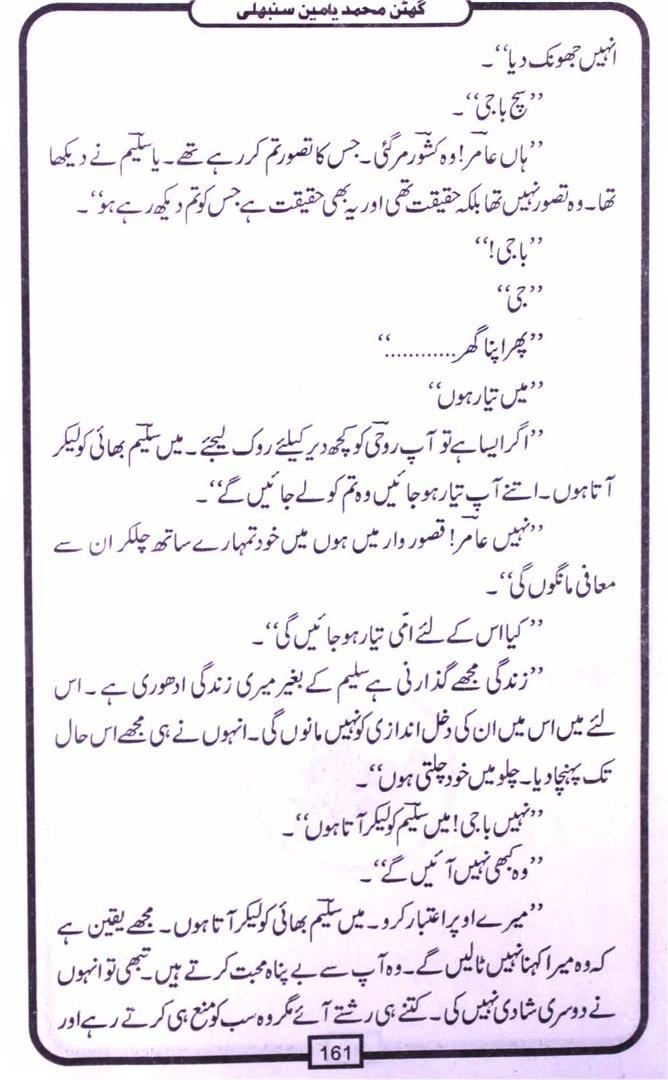 گھٹن محمد یامین سنبھلی
انہیں جھونک دیا‘‘۔
’’سچ باجی‘‘۔
’’ہاں عامر! وہ کشور مرگئی۔ جس کا تصور تم کر رہے تھے۔ یا سلیم نے دیکھا
تھا۔ وہ تصور نہیں تھا بلکہ حقیقت تھی اور یہ بھی حقیقت ہے جس کو تم دیکھ رہے ہو‘‘۔
’’باجی!‘‘
’’جی‘‘
’’پھر اپنا گھر............‘‘
’’میں تیار ہوں‘‘
’’اگر ایسا ہے تو آپ روحی کو کچھ دیر کیلئے روک لیجئے۔ میں سلیم بھائی کو لیکر
آتا ہوں۔ اتنے آپ تیار ہوجائیں وہ تم کو لے جائیں گے‘‘۔
’’نہیں عامر! قصور وار میں ہوں میں خود تمہارے ساتھ چلکر ان سے
معافی مانگوں گی‘‘۔
’’کیا اس کے لئے امّی تیار ہوجائیں گی‘‘۔
’’زندگی مجھے گذارنی ہے سلیم کے بغیر میری زندگی ادھوری ہے ۔ اس
لئے میں اس میں ان کی دخل اندازی کو نہیں مانوں گی۔ انہوں نے ہی مجھے اس حال
تک پہنچا دیا۔ چلو میں خود چلتی ہوں‘‘۔
’’نہیں باجی! میں سلیم کو لیکر آتا ہوں‘‘۔
’’وہ کبھی نہیں آئیں گے‘‘۔
’’میرے اوپر اعتبار کرو۔ میں سلیم بھائی کو لیکر آتا ہوں۔ مجھے یقین ہے
کہ وہ میرا کہنا نہیں ٹالیں گے۔ وہ آپ سے بے پناہ محبت کرتے ہیں۔ تبھی تو انہوں
نے دوسری شادی نہیں کی۔ کتنے ہی رشتے آئے مگر وہ سب کو منع ہی کرتے رہے اور
161